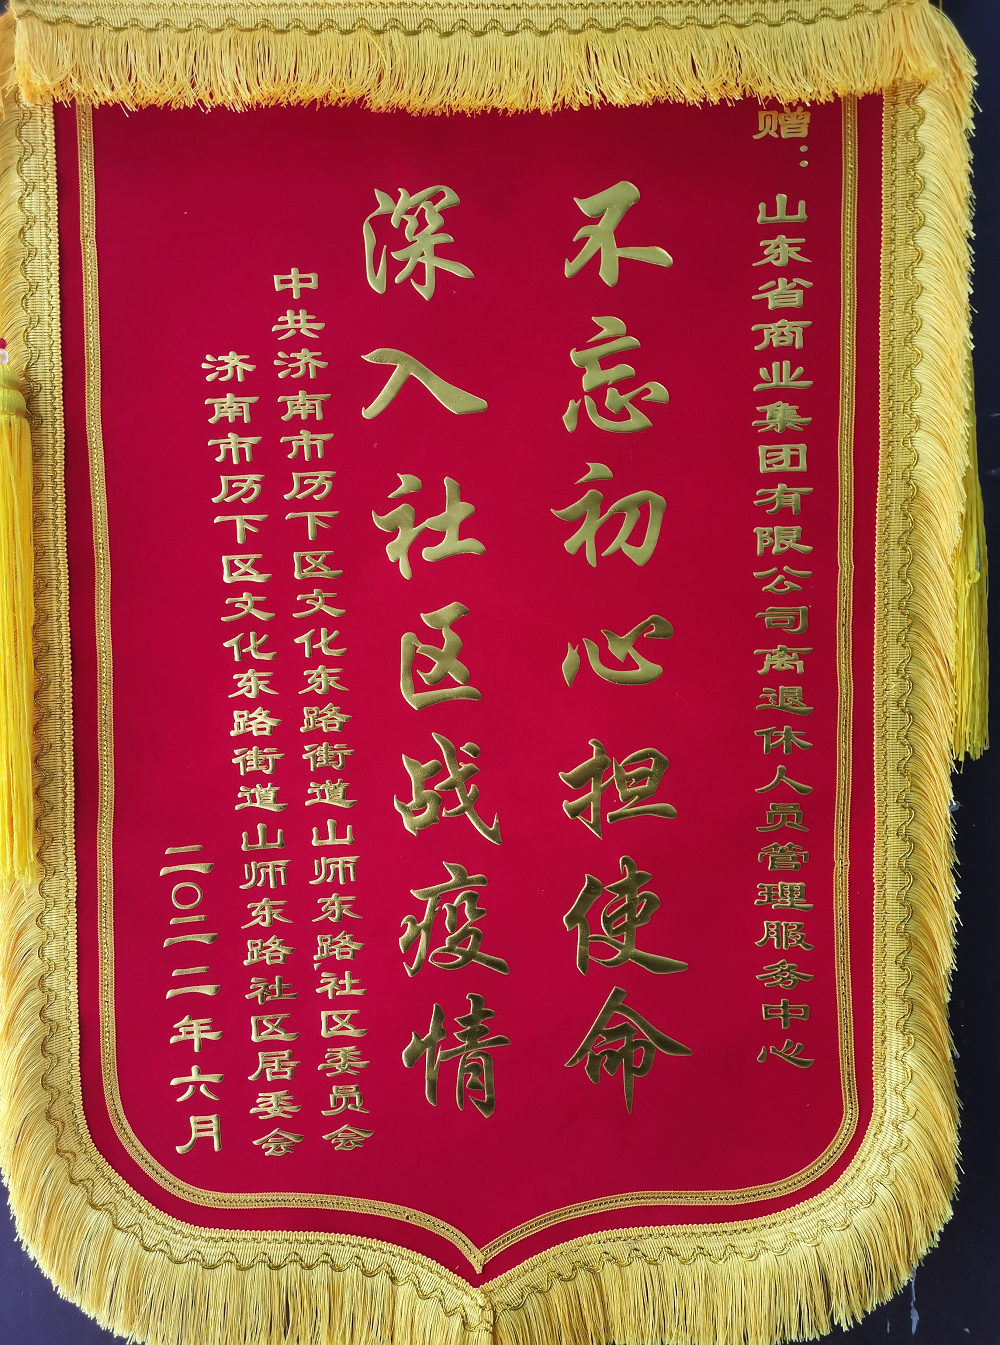 赠：山东省商业集团有限公司离退休人员管理服务中心
不忘初心担使命
深入社区战疫情
中共济南市历下区文化东路街道山师东路社区委员会
济南市历下区文化东路街道山师东路社区居委会
二〇二二年六月